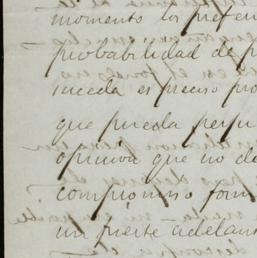 momento los prefen
probabilidad de p
suceda es preciso pro
que pueda perju
opinion que no de
compromiso for
un fuerte adelan